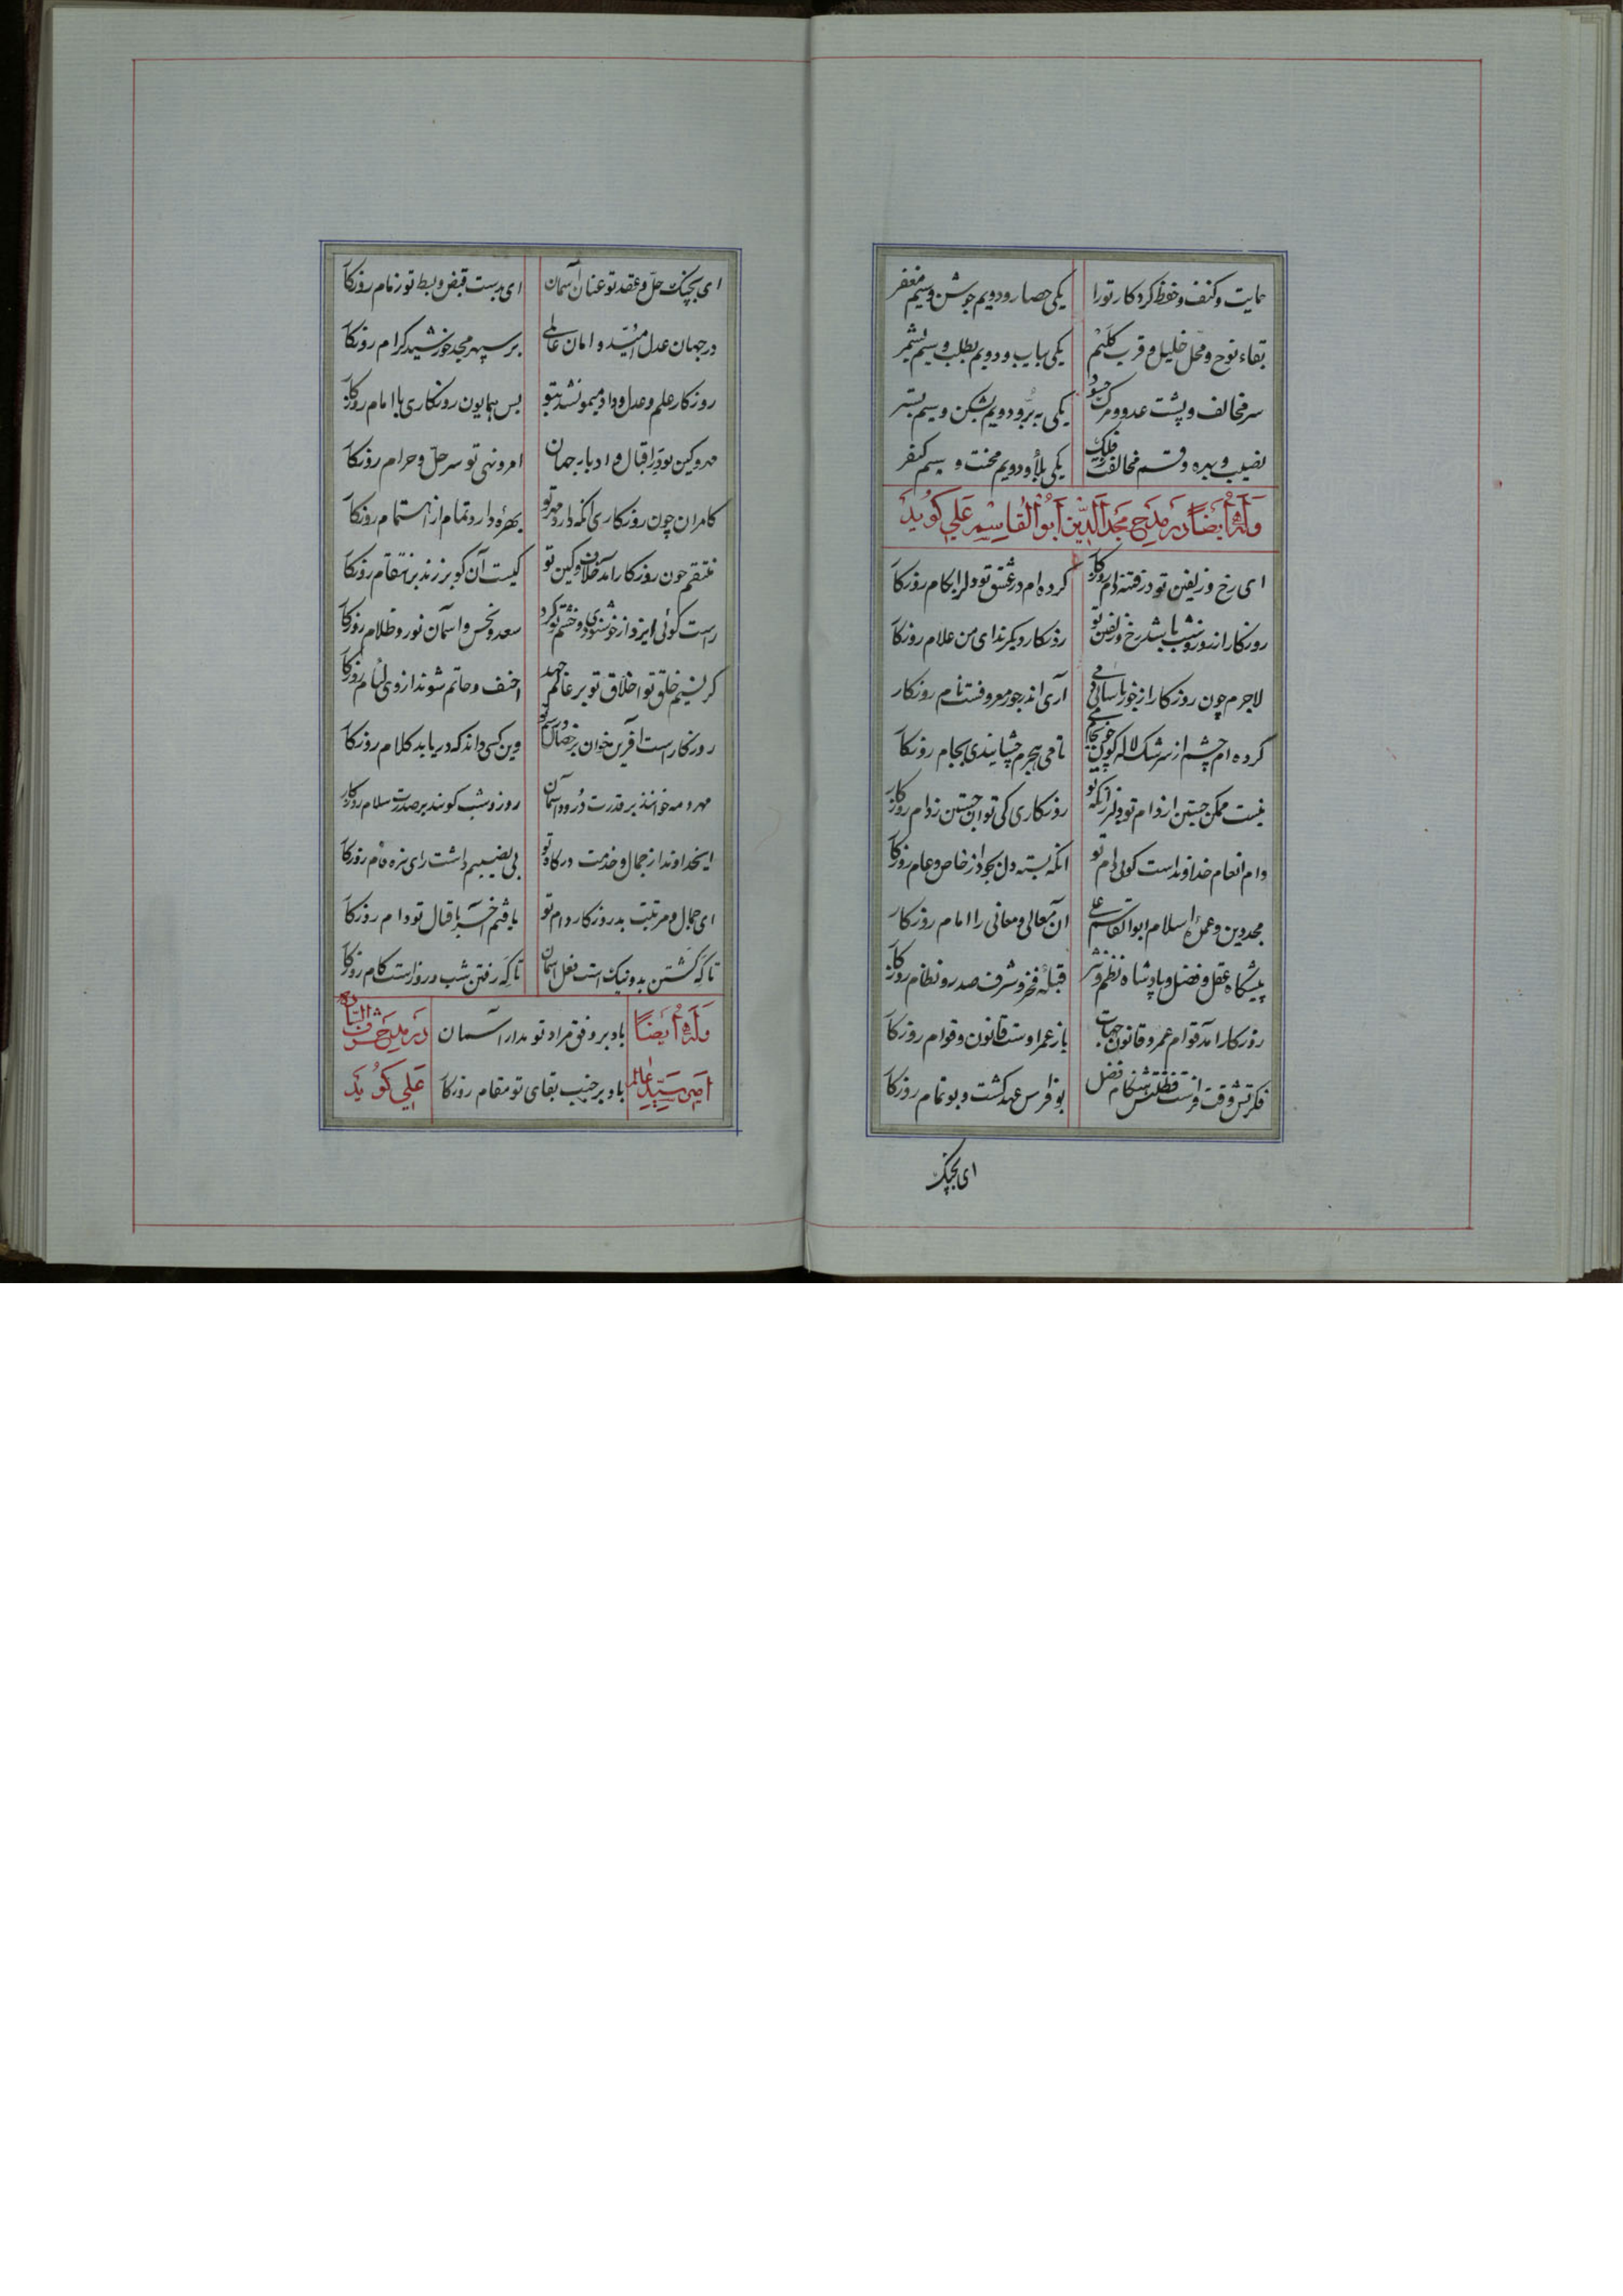 حمایت و کنف و حفظ کردکار تورا یکی حصار و دویم جوشن و سیم مغفر
بقاء نوح و محل خلیل و قرب کلیم یکی بیاب و دویم بطلب و سیم بشمر
سر مخالف و پشت عدو و مرک حسود یکی ببر و دویم بشکن و سیم بستر
نصیب و بهره و قسم مخالفت ز فلک یکی بلا و دویم محنت و سیم کیفر
وله ایضا در مدح مجد الدین ابوالقاسم علی کوید
ای رخ و زلفین تو در فتنه دام روزکار کرده ام در عشق تو دلرا بکام روزکار
روزکار از روز و شب باشد رخ و زلفین تو روزکار دیکرند ای من غلام روزکار
لاجرم چون روزکار از جور ناسائی دمی آری اندر جور معروفست نام روزکار
کرده ام چشم از سرشک لاله کون چون جام می تا می هجرم چشانیدی بجام روزکار
نیست ممکن جستن از دام تو دلرا زانکه تو روزکاری کی توان جستن ز دام روزکار
دام انعام خداونداست کوئی دام تو انکه بسته دل بجود از خاص و عام روزکار
مجد دین و عمده اسلام ابوالقاسم علی ان معالی و معانی را امام روزکار
پیشکاه عقل و فضل و پادشاه نظم و نثر قبله فخر و شرف صدر و نظام روزکار
روزکار امد قوام عمر و قانون حیات باز عمر اوست قانون و قوام روزکار
فکرتش وقت فراست فطنتش هنکام فضل بو فراس عهد کشت و بو تمام روزکار
ای بچنک
ای بچنک حل و عقد تو عنان آسمان ای بدست قبض و بسط تو زمام روزکار
در جهان عدل امید و امان عالمی بر سپهر مجد خورشید کرام روزکار
روزکار علم و عدل و داد میمون شد بتو بس همایون روزکاری با امام روزکار
مهر و کین بود اقبال و ادبار جهان امر و نهی تو سر حل و حرام روزکار
کامران چون روزکاری انکه دارد مهر تو بهره دارد تمام از اهتمام روزکار
منتقم چون روزکار آمد خلاف و کین تو کیست آن کو بر زند بر انتقام روزکار
راست کوئی ایزد از خوشنودی و خشم تو کرد سعد و نحس و اسمان نور و ظلام روزکار
کر نسیم خلق تو اخلاق تو بر عالم جهد احنف و حاتم شوند از وی لئام روزکار
روزکار است آفرین خوان بر خصال و رسم تو وین کسی داند که دریابد کلام روزکار
مهر و مه خوانند بر قدرت درود آسمان روز و شب کویند بر صدرت سلام روزکار
ایخداوند از جمال و خدمت درکاه تو بی نصیبم داشت رای تیره فام روزکار
ای جمال و مرتبت بد روزکار دام تو یافتم آخر باقبال تو دام روزکار
تا که کشتن بد و نیک است فعل آسمان تا که رفتن شب و روز است کام روزکار
وله ایضا باد بر وفق مراد تو مدار آسمان در مدح شرف السادة
امیر سید عالم باد بر جنب بقای تو مقام روزکار علی کوید